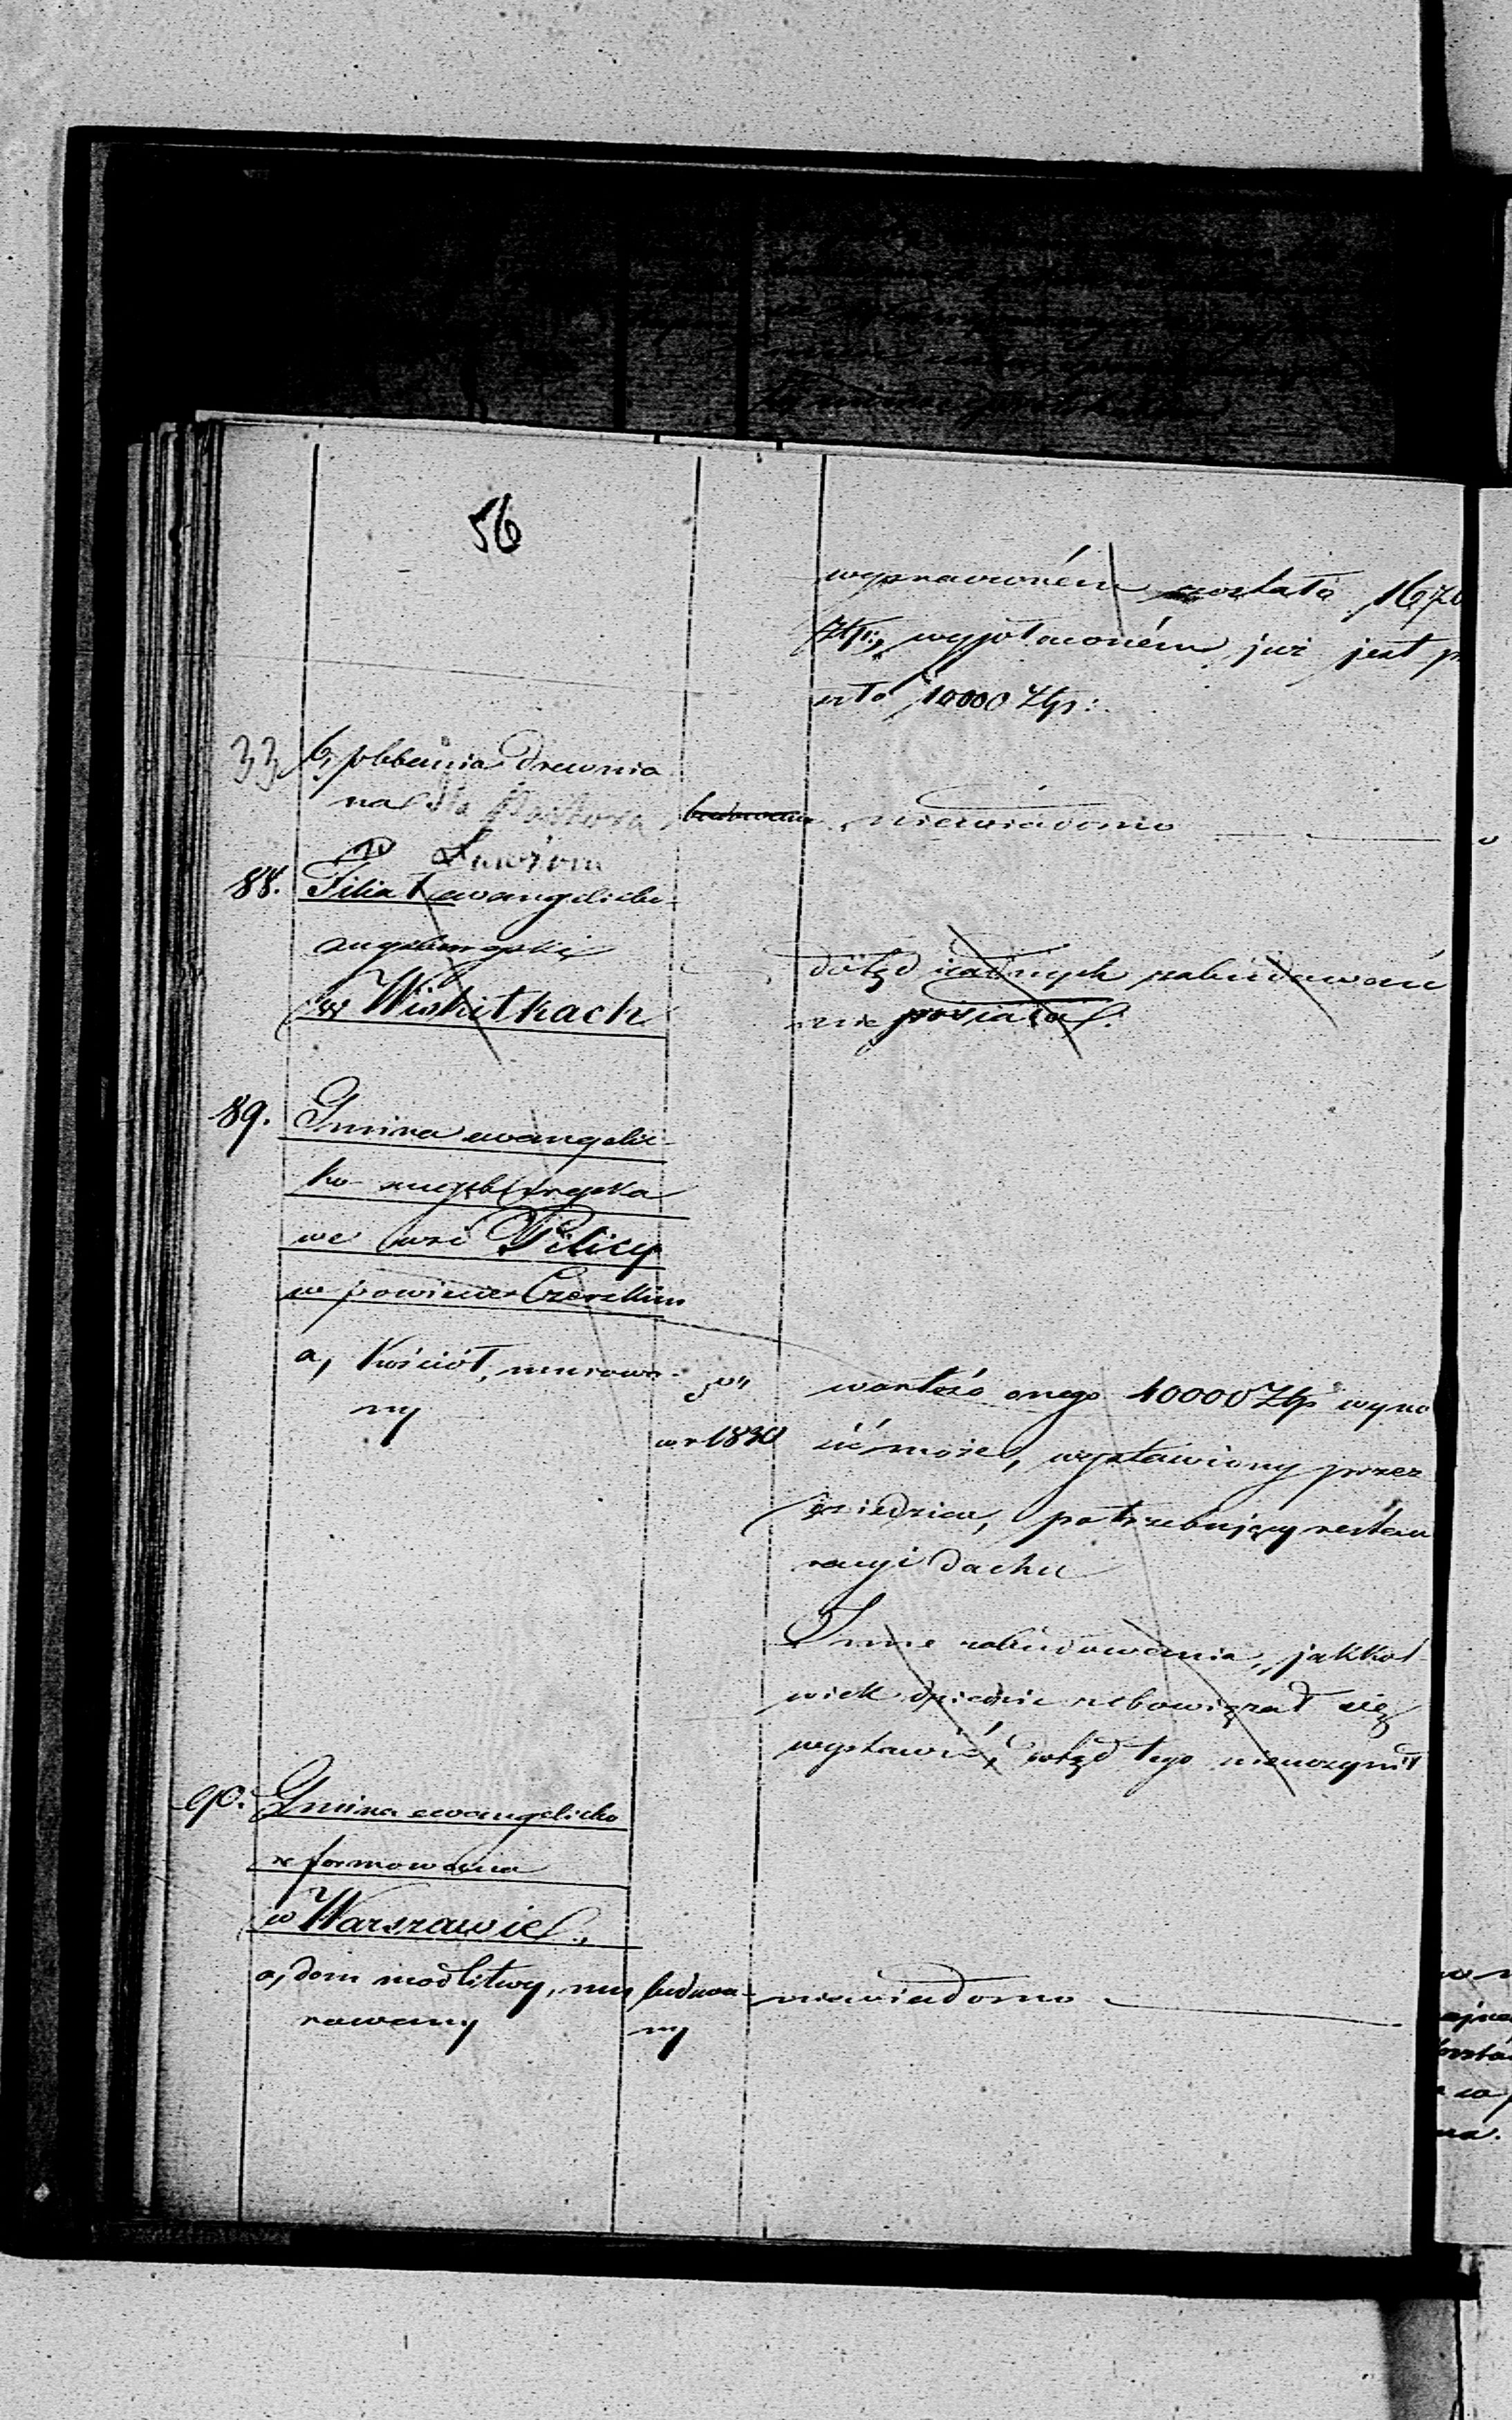 56
wyznaczoném zostało 1670
Złp:, wypłaconém już jest p
szło 10000 Złp:
33. b, plebania drewnia
na dla Pastora
niewiadomo
w Lwówm
88. Filiał ewangelicko
augsburgski
w Wiskitkach
dotąd żadnych zabudowań
nie posiada.
89. Gmina ewangelic
ko-augsburgska
we wsi Pilicy
w powiecie Czerskim
a, Kościół, murowa-
ny
w r 1830
wartość onego 10000 Złp wyno
sić może, wystawiony przez
dziedzica, potrzebujący restau
racyi dachu
Inne zabudowania, jakkol
wiek dziedzic zobowiązał się
wystawić, dotąd tego nieuczynił
90. Gmina ewangelicko
reformowana
w Warszawie.
a, dom modlitwy, mu
rowany
budowa-
ny
niewiadomo